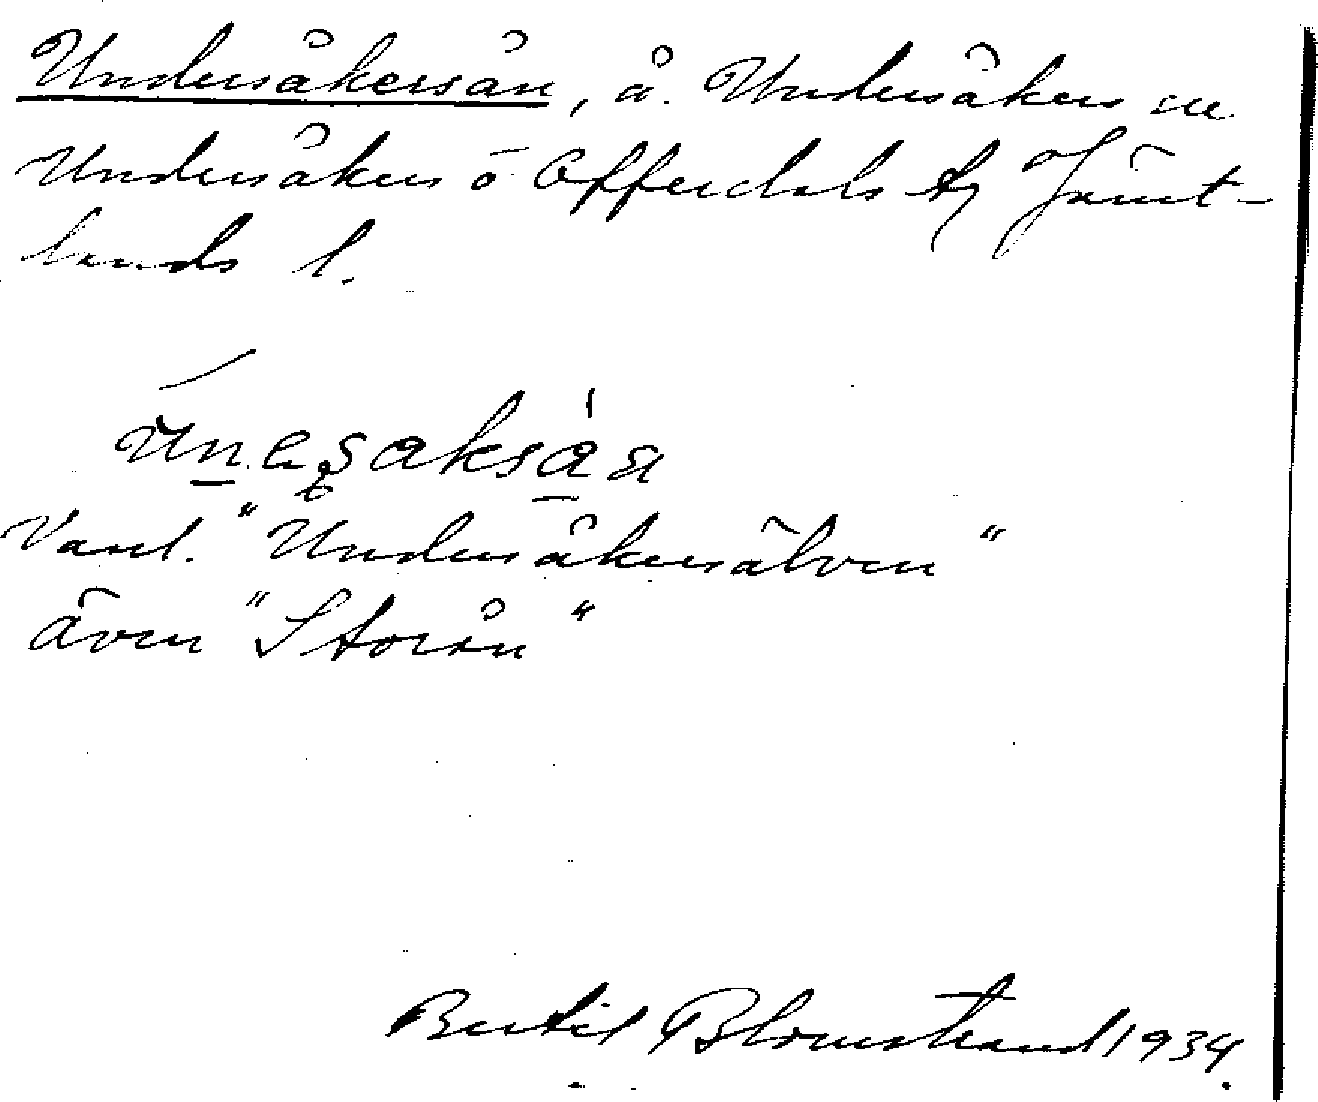 Undersåkersån, å. Undersåkers sn
Undersåkers o Offerdals tg Jämt-
lands l.
Vanl. "Undersåkersälven"
även "Storån"
Bertil Blomstrand 1934.